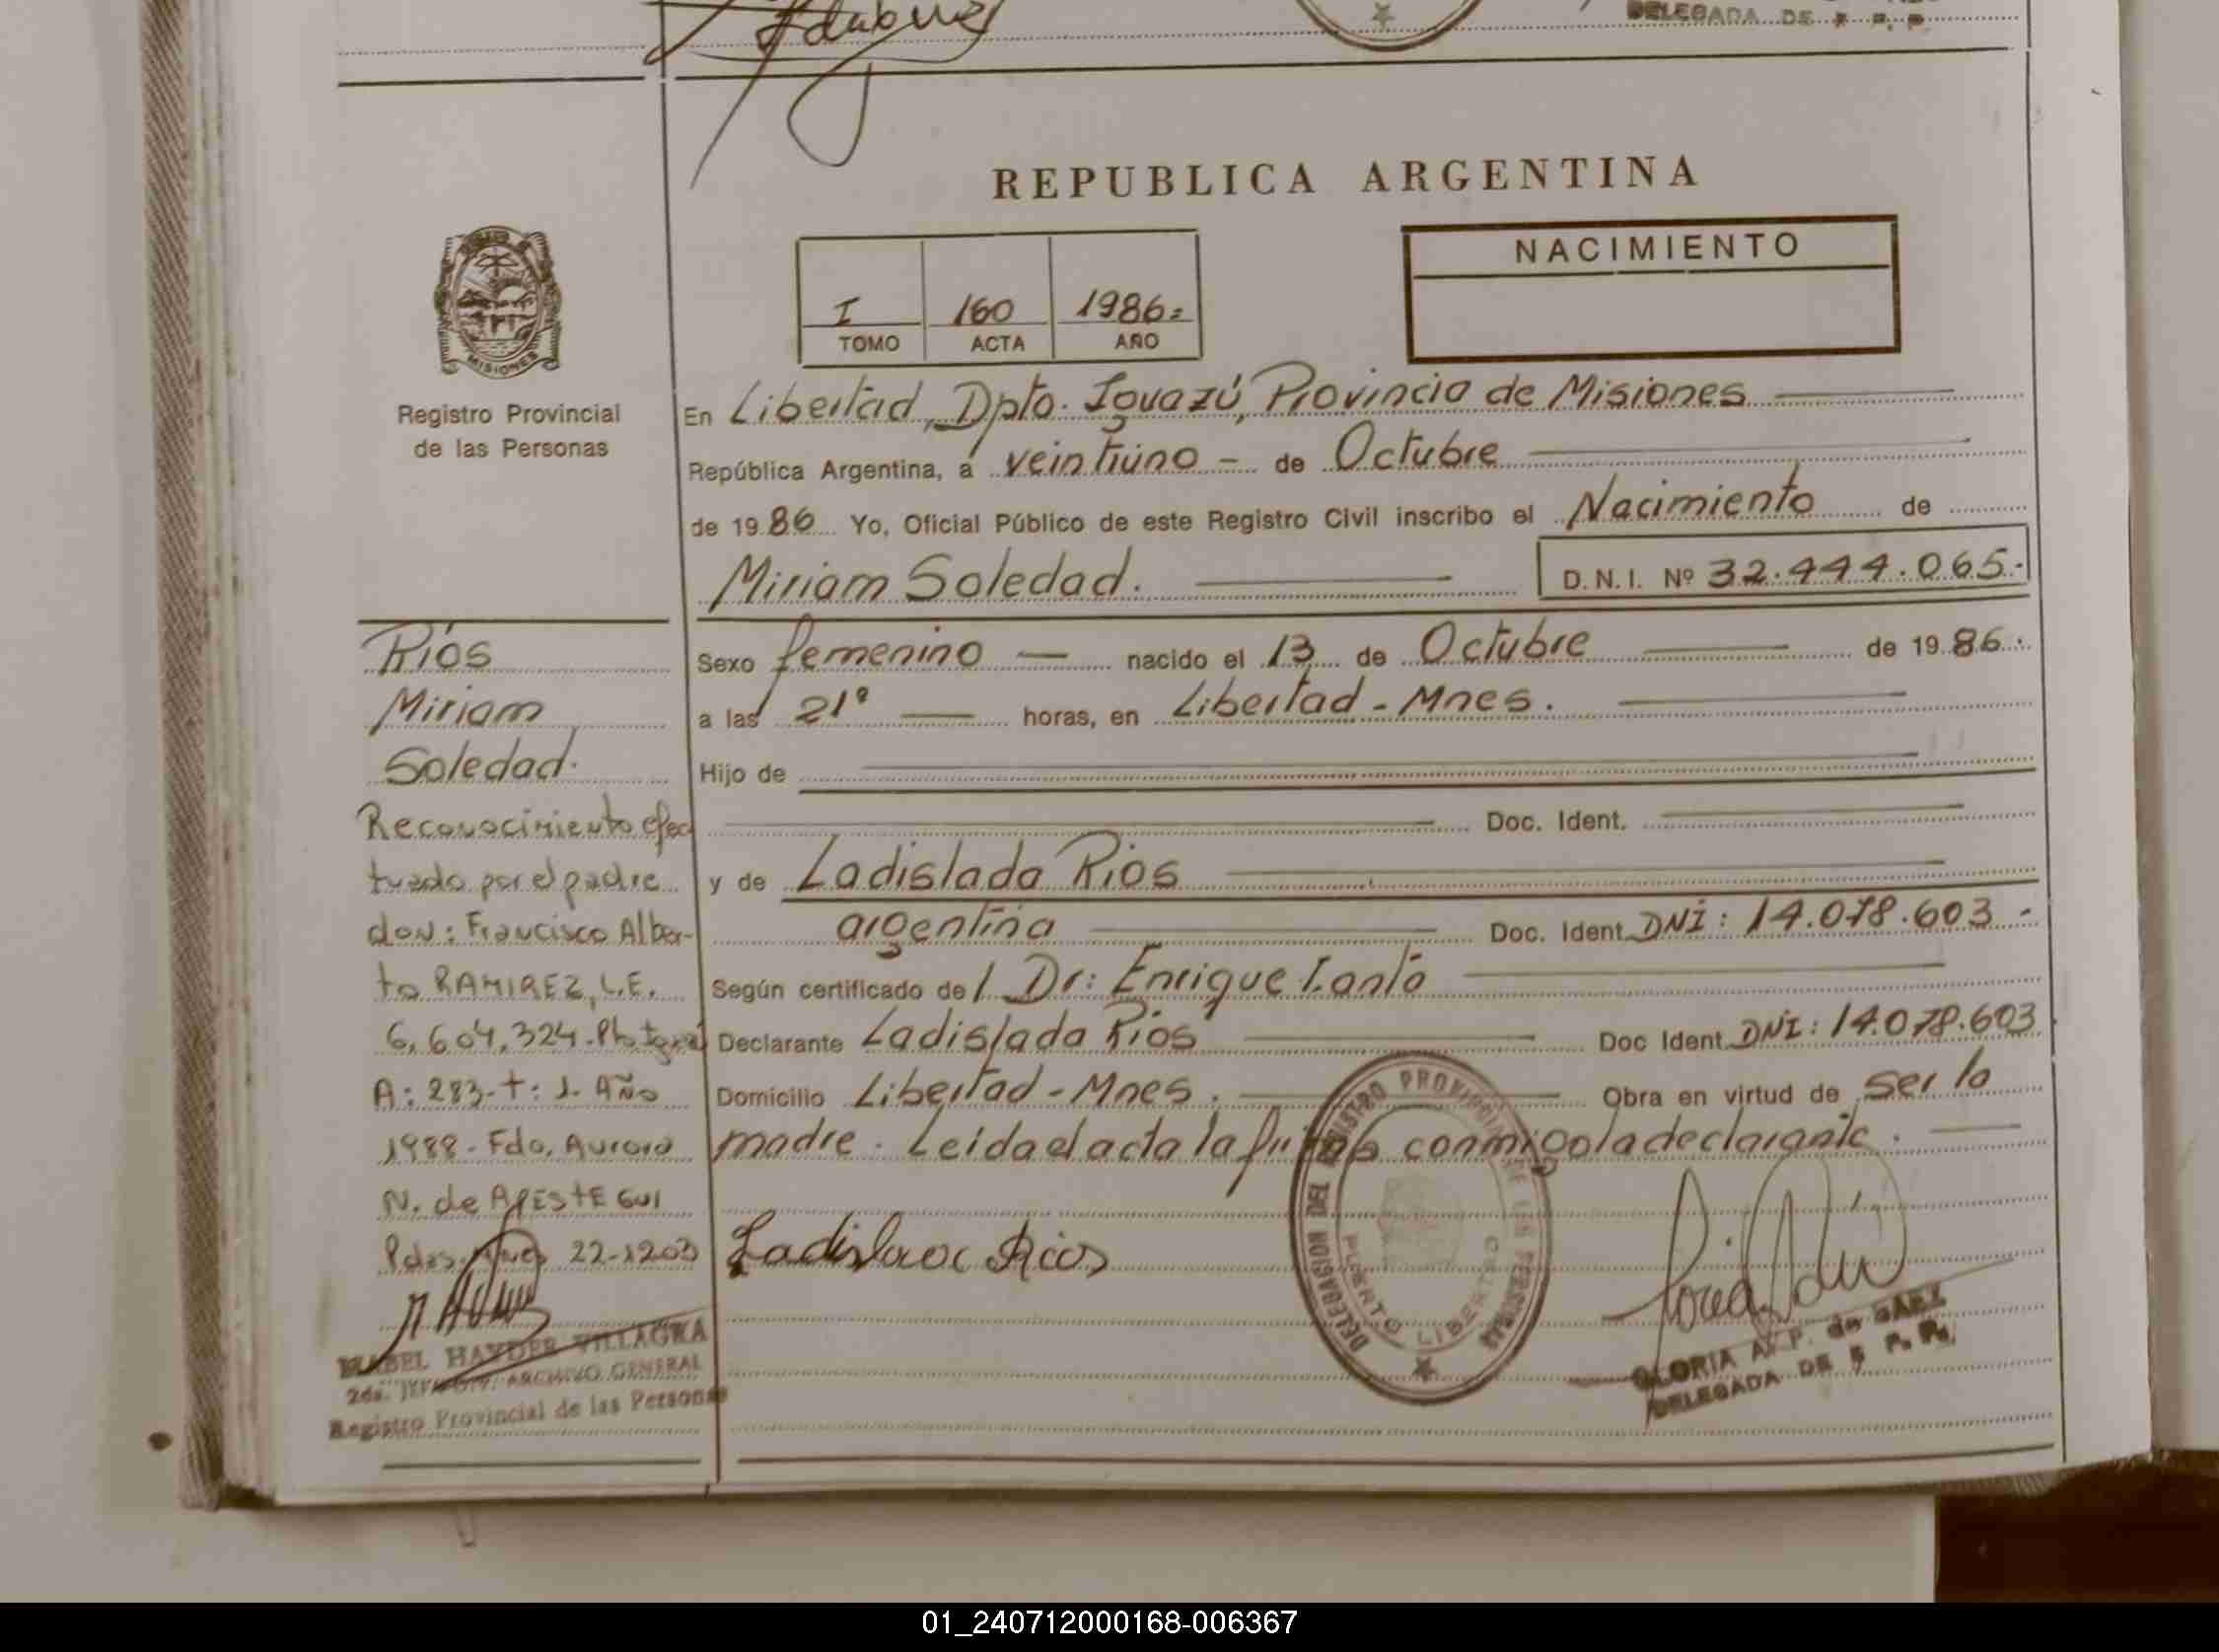 DELEGADA DE
REPUBLICA ARGENTINA
NACIMIENTO
I 160 1986.=
TOMO ACTA AÑO
MISIONES
Registro Provincial
de las Personas
En Libertad, Dpto. Iguazú, Provincia de Misiones
República Argentina, a veintiuno - de Octubre
de 1986 Yo, Oficial Público de este Registro Civil inscribo el Nacimiento de
Miriam Soledad. D.N.I. Nº 32.444.065.-
Sexo femenino — nacido el 13 de Octubre de 1986.
a las 21º — horas, en Libertad - Mnes.
Hijo de
Doc. Ident.
y de Ladislada Rios
argentina Doc. Ident. DNI: 14.078.603 -
Según certificado del Dr: Enrique
Declarante Ladislada Rios Doc Ident. DNI: 14.078.603
Domicilio Libertad - Mnes. Obra en virtud de ser la
madre. Leida el acta la firma conmigo la declarante.
Ladislada Rios
Ríos
Miriam
Soledad.
Reconocimiento efec
tuado por el padre
don: Francisco Alber-
to RAMIREZ, L.E.
6.604.324.
A: 283-t: 1. Año
1988 - Fdo. Aurora
N. de APESTEGUI
Pdas. Mnes 22-1203
HAYDEE VILLAGRA
ARCHIVO GENERAL
Registro Provincial de las Personas
DELEGACION DEL REGISTRO PROVINCIAL DE LAS PERSONAS
PUERTO LIBERTAD
GLORIA A. P. de BAEZ
DELEGADA DE
01_240712000168-006367